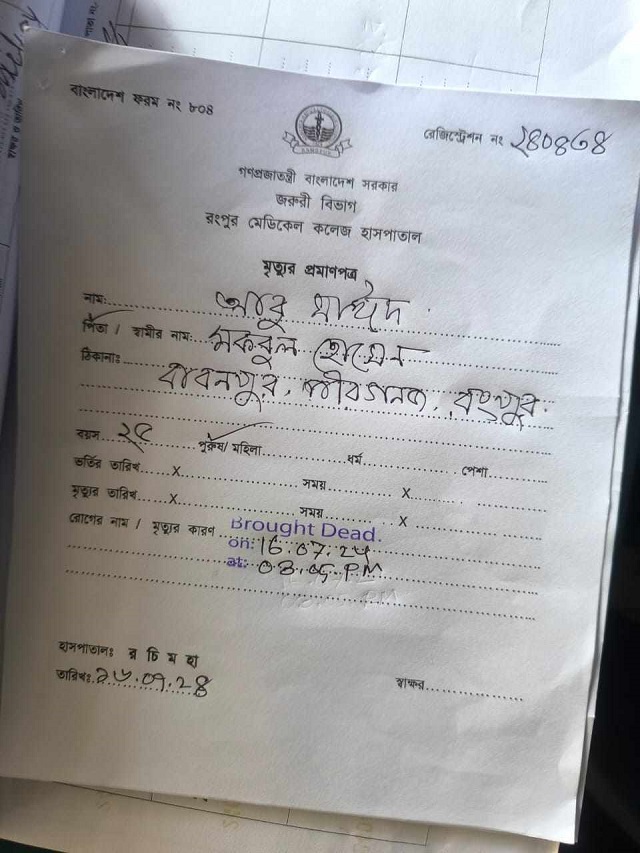 বাংলাদেশ ফরম নং ৮০৪
রেজিস্ট্রেশন নং
গণপ্রজাতন্ত্রী বাংলাদেশ সরকার
জরুরী বিভাগ
রংপুর মেডিকেল কলেজ হাসপাতাল
মৃত্যুর প্রমাণপত্র
নাম: আবু সাঈদ
পিতা / স্বামীর নাম: মকবুল হোসেন
ঠিকানাঃ বাবনপুর, পীরগনজ, রংপুর.
বয়স ২৫ পুরুষ/ মহিলা ধর্ম পেশা
ভর্তির তারিখ X সময় X
মৃত্যুর তারিখ X সময় X
রোগের নাম / মৃত্যুর কারণ Brought Dead.
on: 16.07.24
at: 03.05 PM
হাসপাতালঃ র চি ম হা
তারিখঃ ১৬.০৭.২৪
স্বাক্ষর